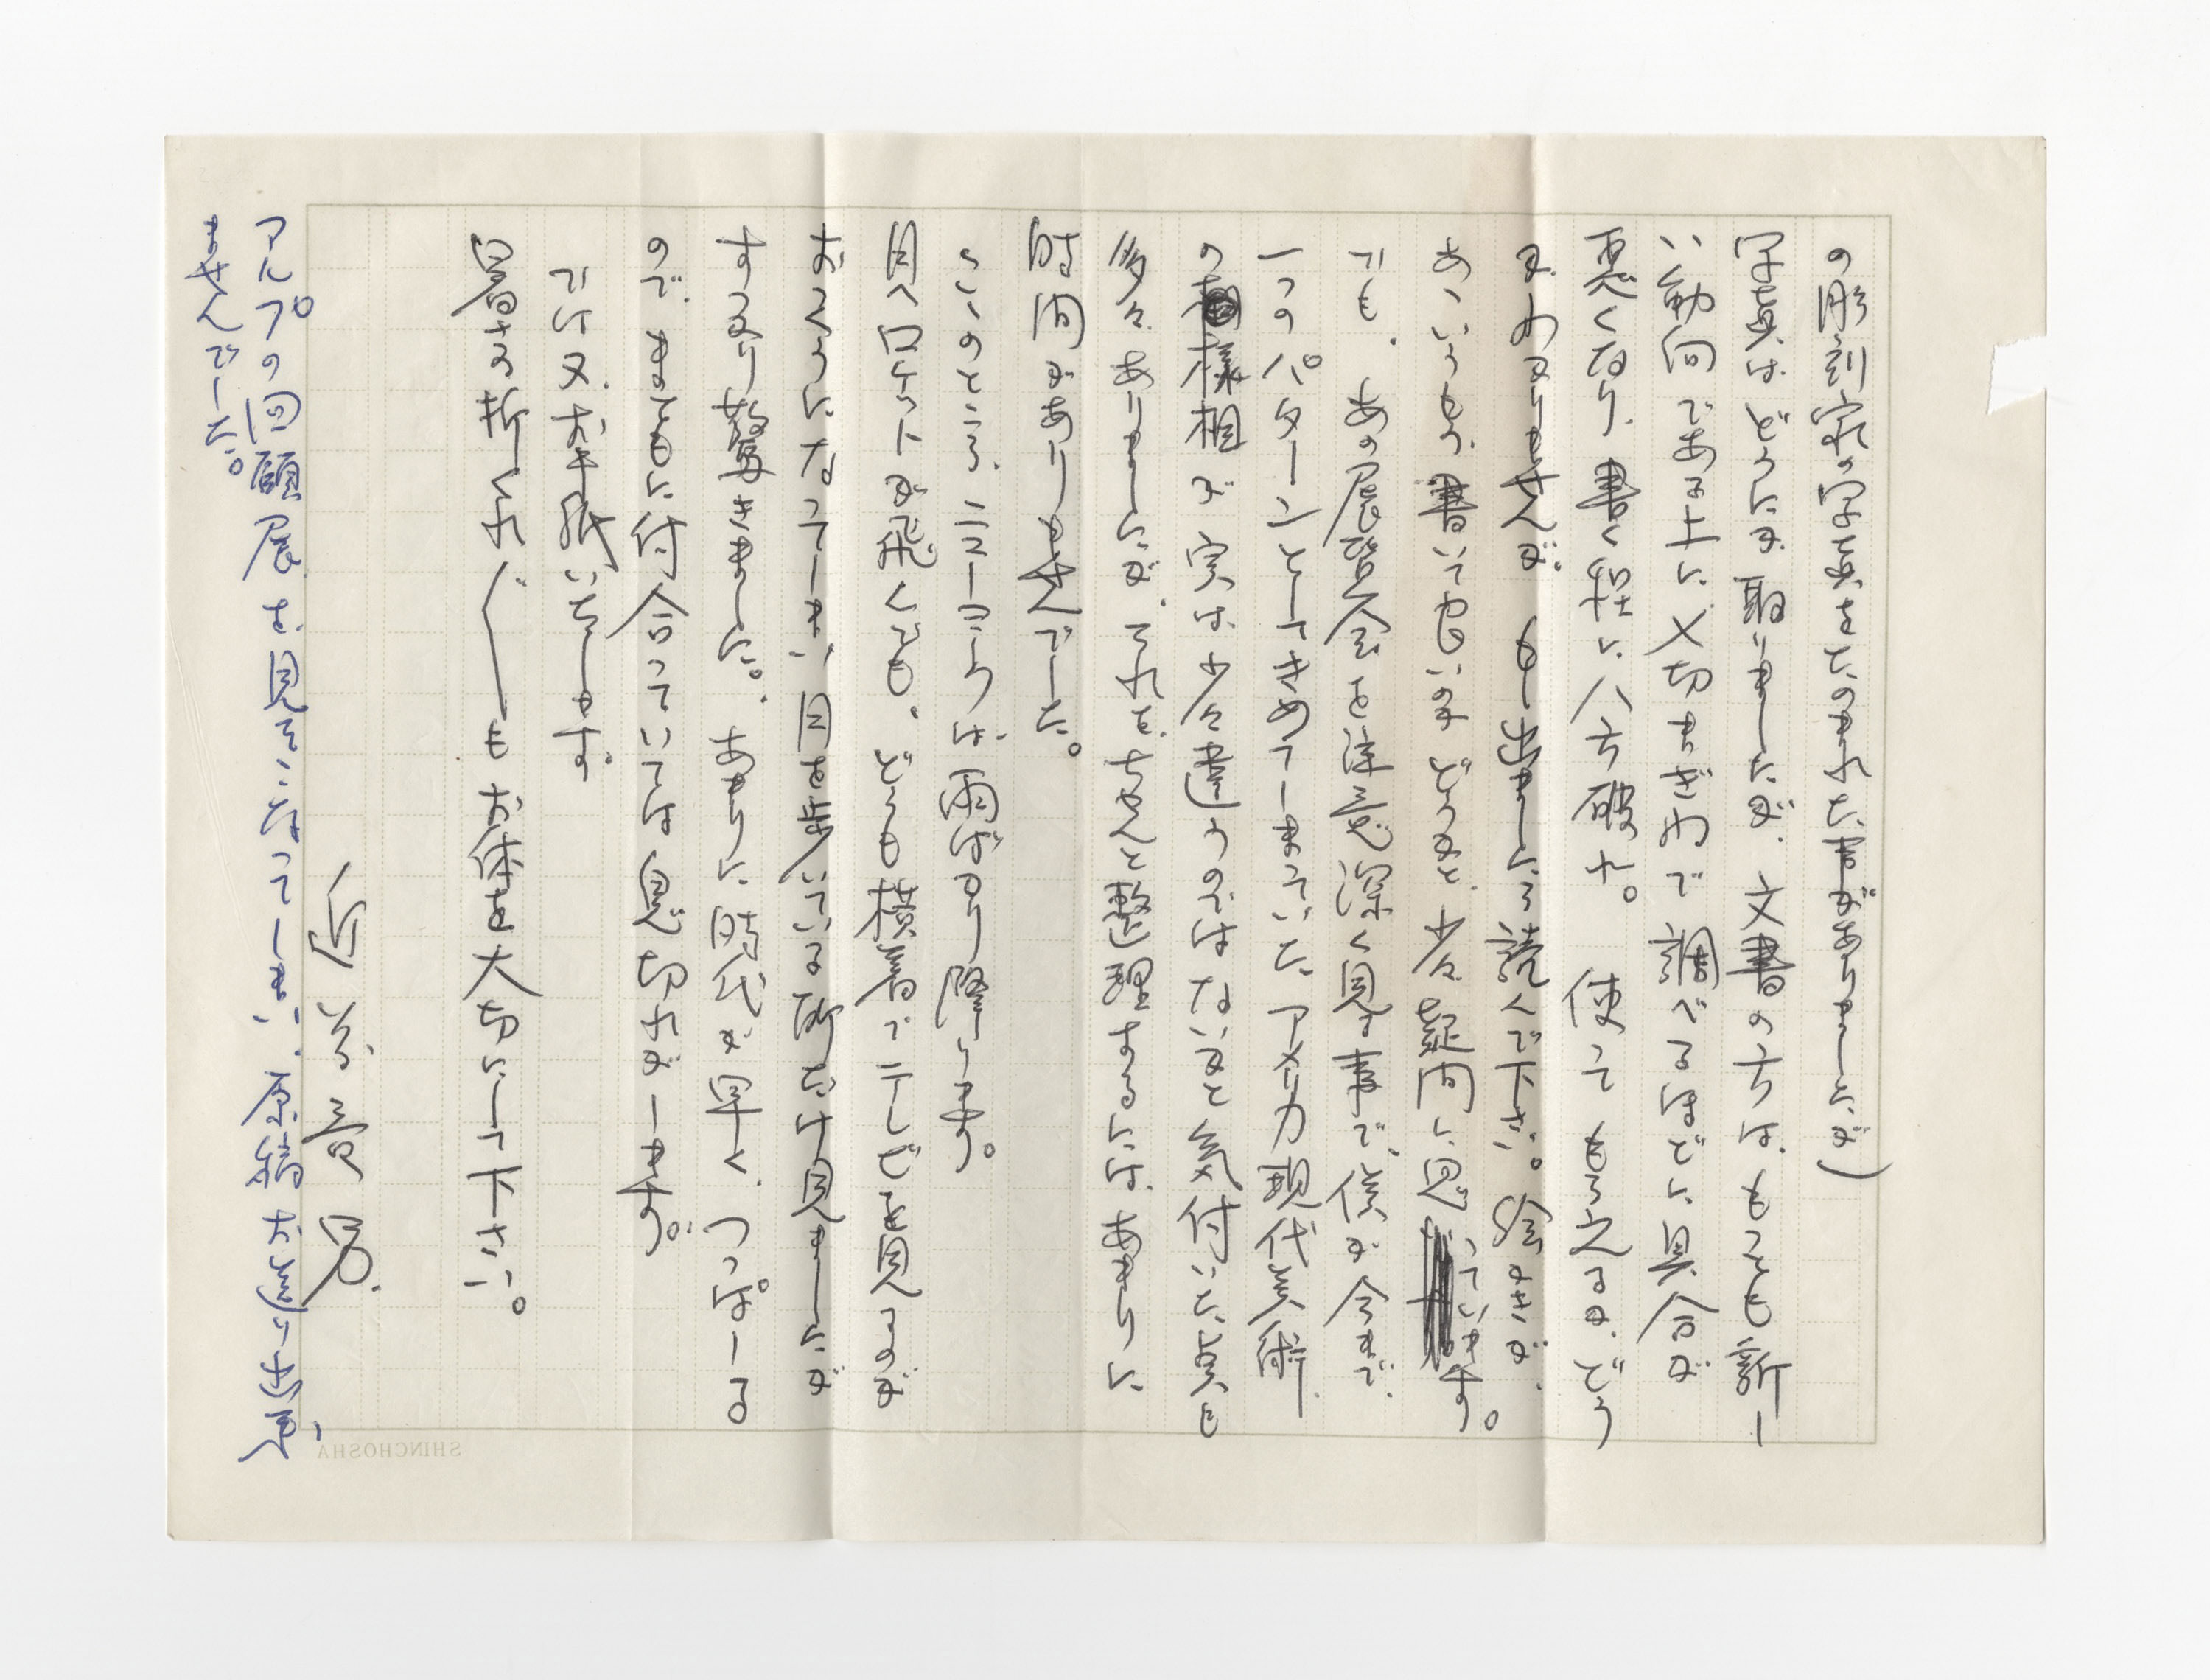 の彫刻家の写真をたのまれた事がありましたが)
写真はどうにか取りましたが、文書の方は、もっとも新し
い動向である上に、〆切まぎわで調べるほどに具合が
悪くなり、書く程に八方破れ。使ってもらえるか、どう
かわかりませんが、もし出ましたら読んで下さい。絵かきが、
あゝいうもの書いて良いのかどうかと、少々疑問に思っています。
でも、あの展覧会を注意深く見る事で、僕が今まで、
一つのパターンとしてきめてしまっていたアメリカ現代美術
の様相が実は少々違うのではないかと気付いた点も
多々ありましたが、それをちゃんと整理するには、あまりに
時間がありませんでした。
こゝのところ、ニューヨークは、雨ばかり降ります。
月へロケットが飛んでも、どうも横着でテレビを見るのが
おっくうになってしまい月を歩いている所だけ見ましたが
すっかり驚きました。あまりに時代が早く、つっぱしる
ので、まともに付合っていては息切れがします。
では又、お手紙いたします。
暑さの折くれ〴〵もお体を大切にして下さい。
SHINCHOSHA
アルプの回顧展は見そこなってしまい、原稿お送り出来
ませんでした。